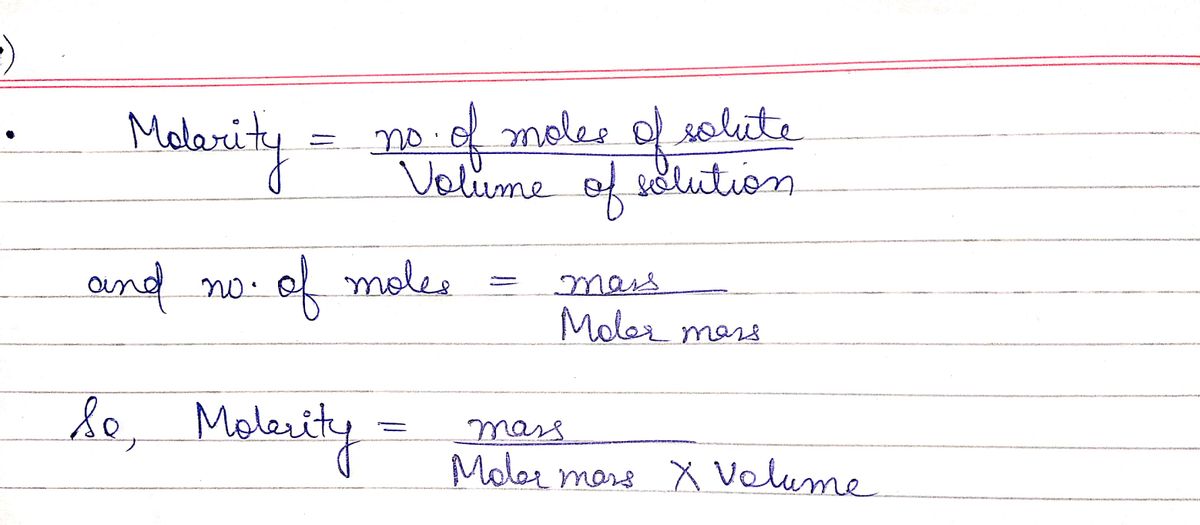 Molarity = no. of moles of solute
Volume of solution
and no. of moles = mass
Molar mass
So, Molarity = mass
Molar mass X Volume